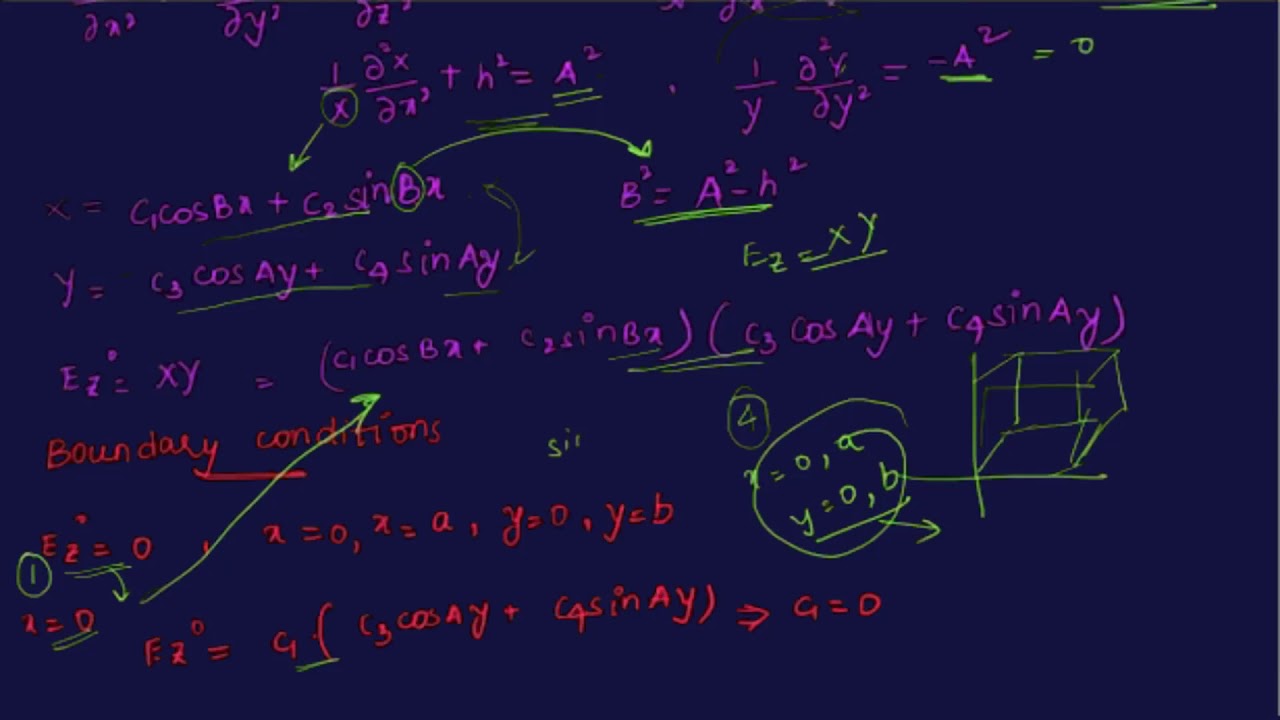 ∂x² ∂y² ∂z²
1/x ∂²x/∂x² + h² = A² , 1/y ∂²y/∂y² = -A² = 0
x = C₁cosBx + C₂sinBx B² = A² - h²
Ez = XY
Y = C₃ cosAy + C₄ sinAy
Ez° = XY = (C₁cosBx + C₂sinBx) (C₃ cosAy + C₄sinAy)
④
Boundary conditions sin
x = 0, a
y = 0, b
Ez° = 0 , x = 0, x = a, y = 0, y = b
①
x = 0 Ez° = C₁ · (C₃cosAy + C₄sinAy) ⇒ C₁ = 0